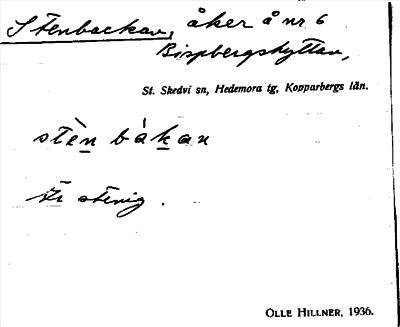 Stenbackan, åker å nr 6
Bispbergshyttan,
St. Skedvi sn, Hedemora tg, Kopparbergs län.
stèn bàkan
Är stenig.
OLLE HILLNER, 1936.